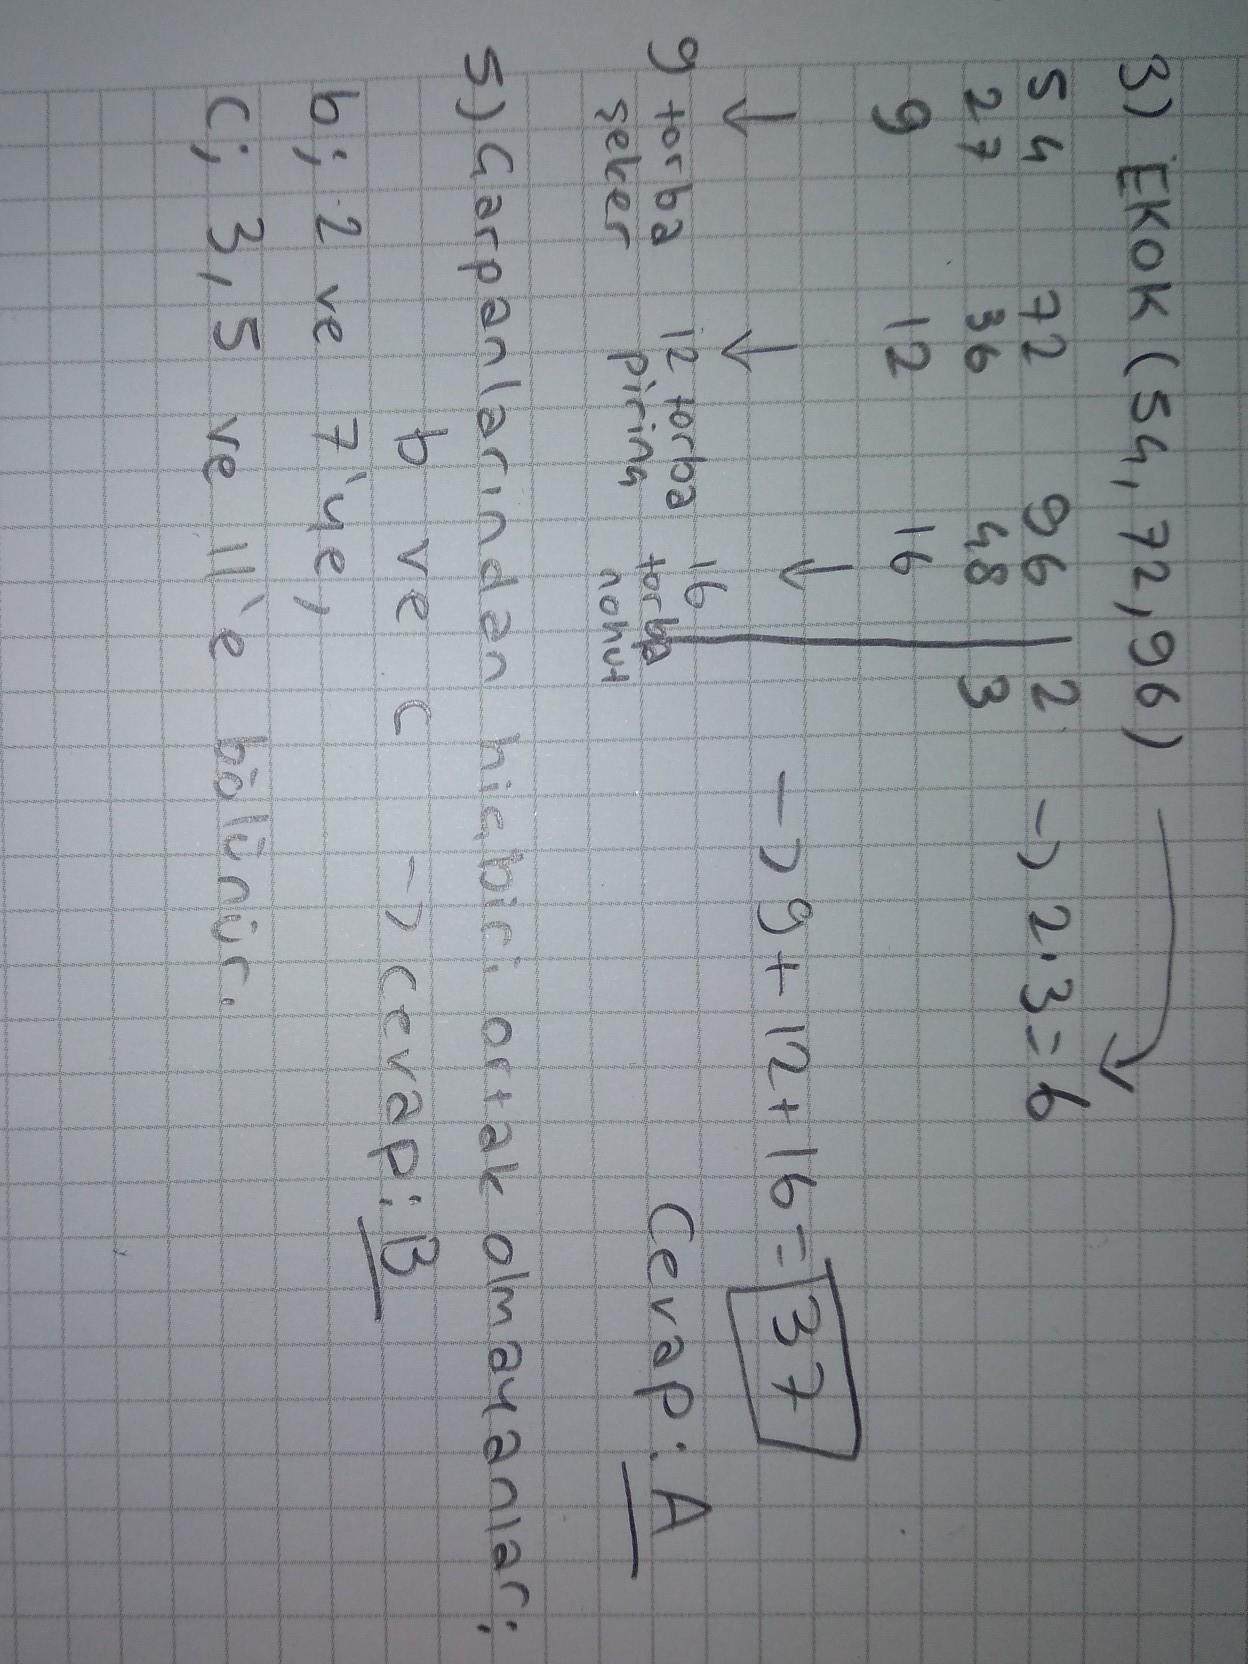 3) EKOK (54, 72, 96)
54 72 96 | 2 → 2.3=6
27 36 48 3
9 12 16
→ 9+12+16=37
9 torba şeker 12 torba pirinç 16 torba nohut
Cevap: A
5) Çarpanlarından hiçbiri ortak olmayanlar;
b ve c → cevap: B
b; 2 ve 7'ye,
c; 3, 5 ve 11'e bölünür.